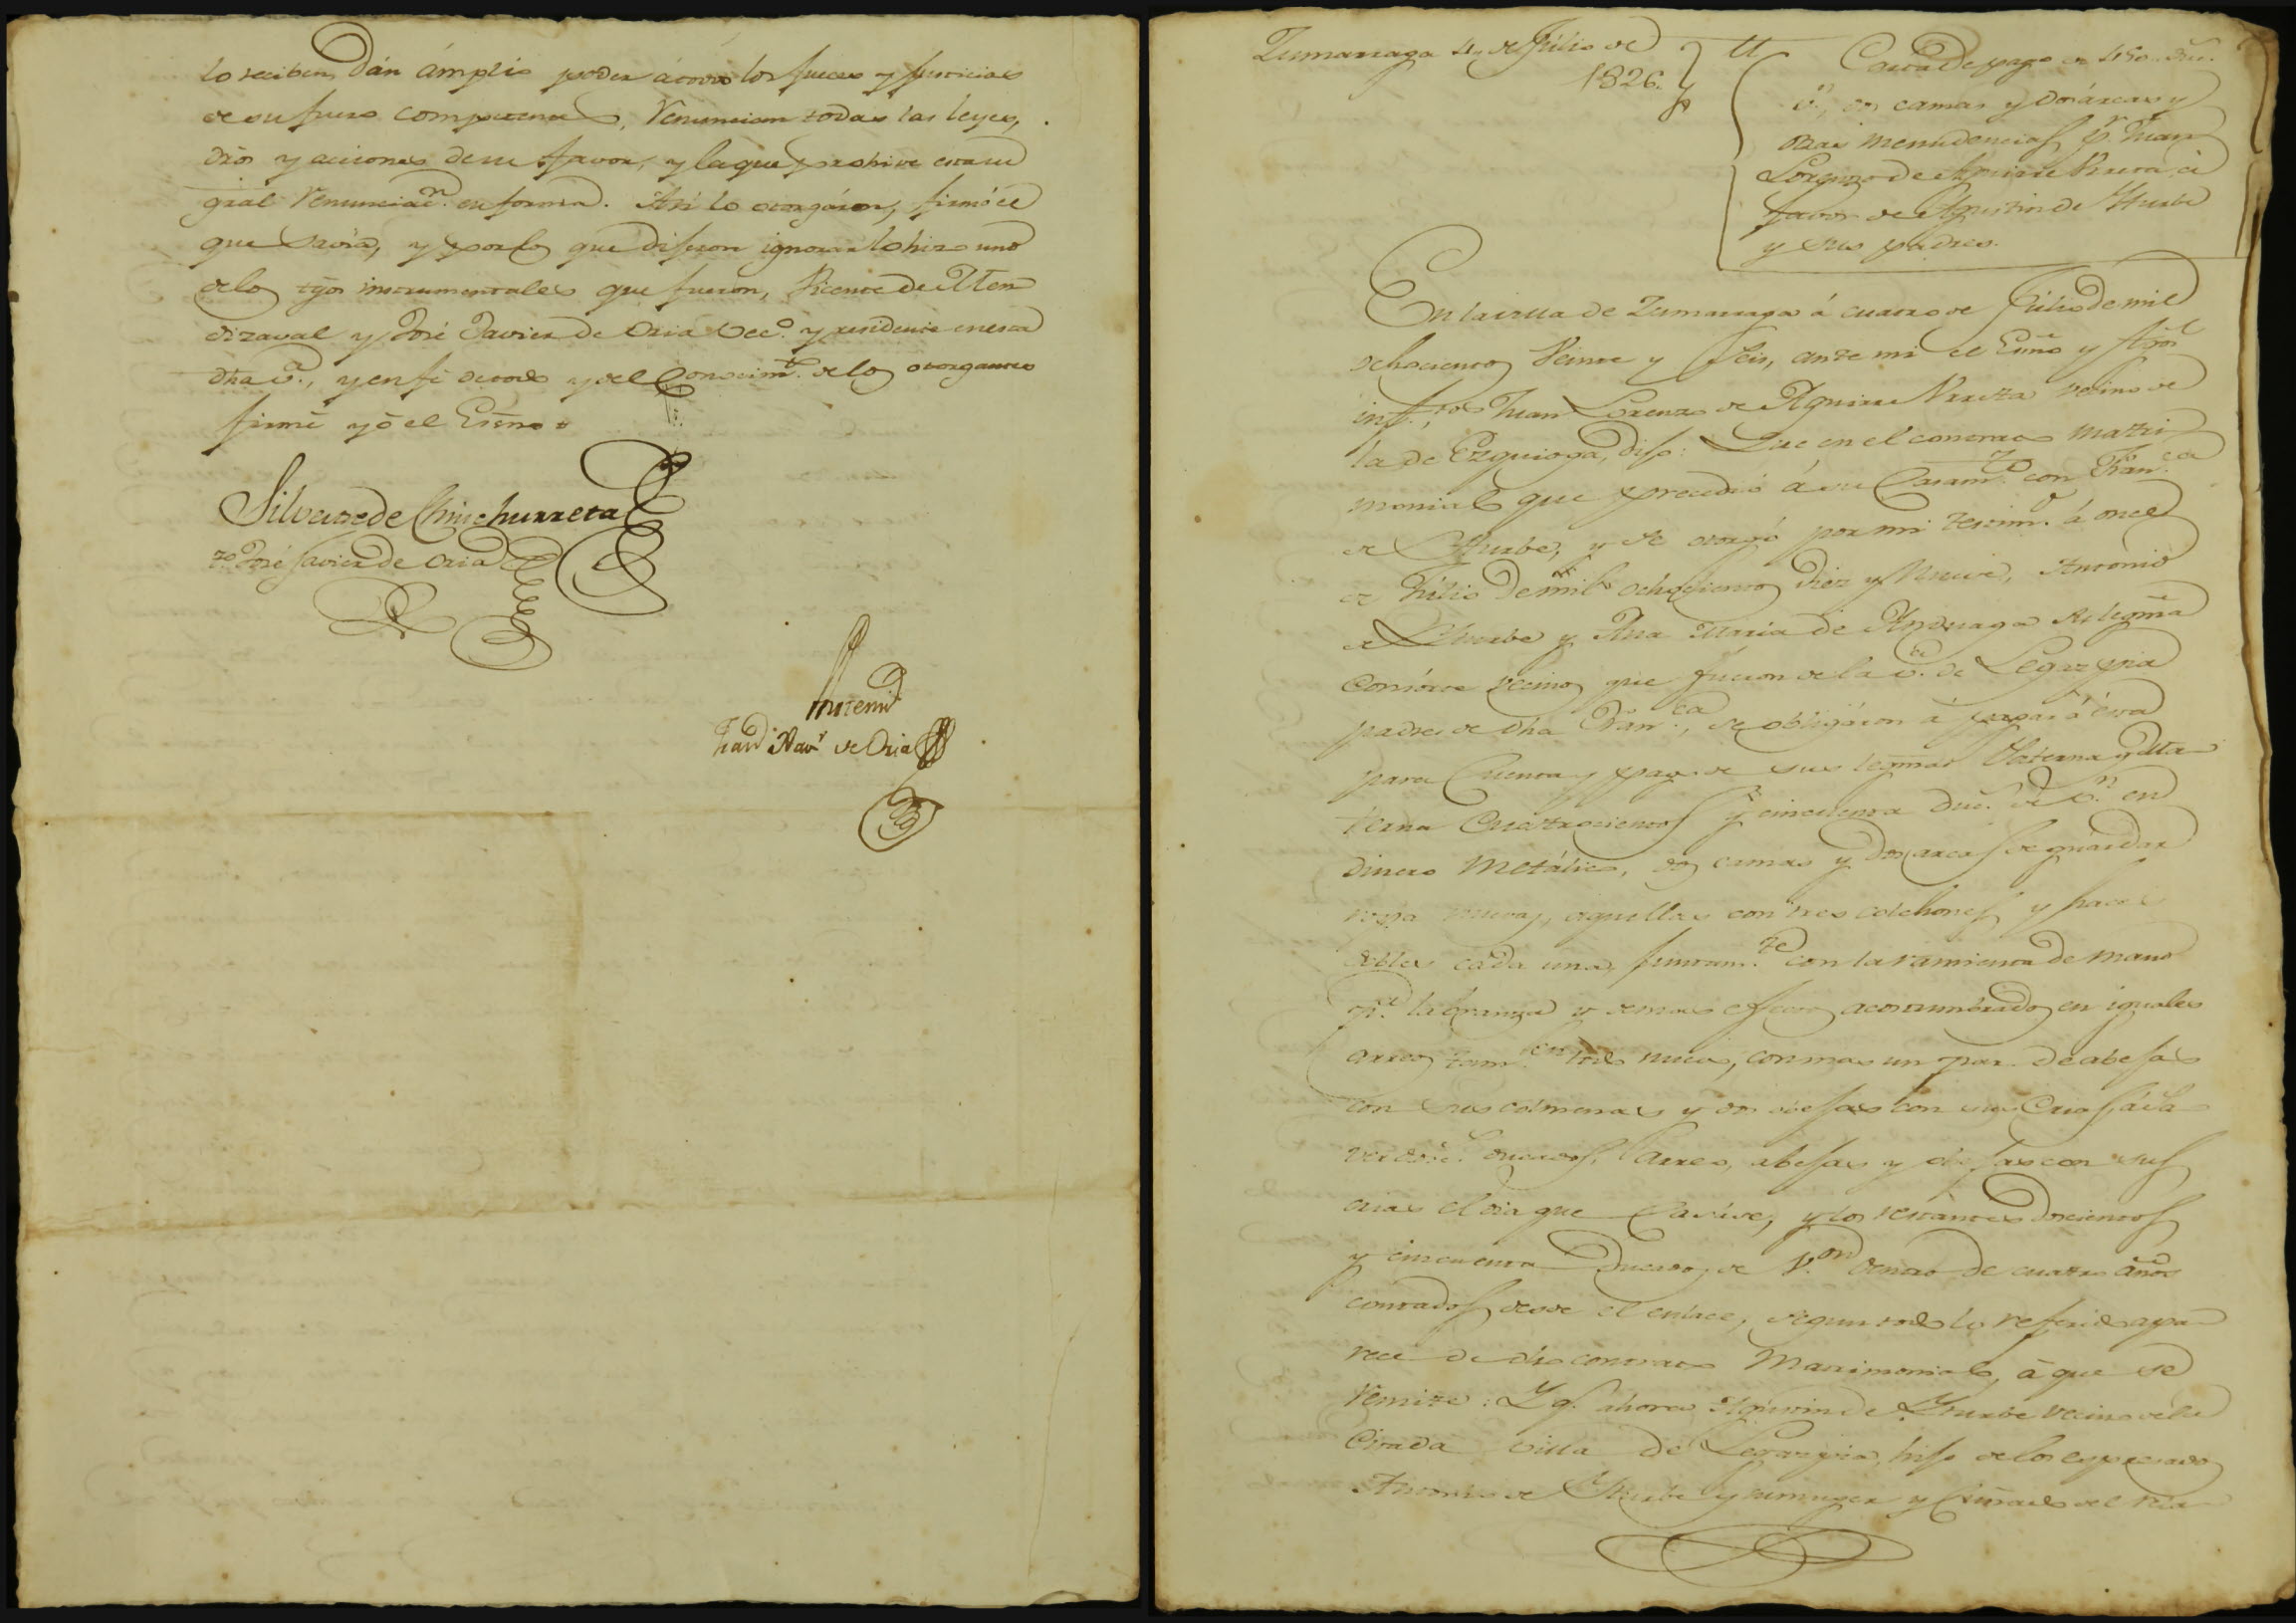 lo reciben, dán ámplio poder á todos los Jueces y Justicias
de su fuero competente, renuncian todas las leyes,
dros y acciones de su favor, y la que prohive esta su
gral renunciac.n en forma. Asi lo otorgáron, firmó el
que savia, y por los que dijeron ignorar lo hizo uno
de los tgos instrumentales que fueron, Vicente de Men
dizaval y José Javier de Oria vec.o y residente en esta
dha v.a, y en fé de todo y del conocim.to de los otorgantes
firmé yó el Esno.
Silvestre de Chinchurreta
to José Javier de Oria
Antemi
Xav.r de Oria
Zumarraga 4 de Júlio de
1826.
Carta de pago de 450 duc.
v.n, dos camas y dos árcas y
otras menudencias p.r Juan
Lorenzo de Aguirre Urreta á
favor de Agustin de Yturbe
y sus padres.
En la villa de Zumarraga á cuatro de Júlio de mil
ochocientos veinte y seis, ante mi el Esno y tgos
inf.tos Juan Lorenzo de Aguirre Urreta vecino de
la de Ezquioga, dijo: Que en el contrato matri
monial que precedió á su Casam.to con Fran.ca
de Yturbe, y se otorgó por mi testim.o á once
de Júlio de mil ochocientos diez y nueve, Antonio
de Yturbe y Ana Maria de Anduaga su legma
Consorte vecinos que fueron de la v.a de Legazpia
padres de dha Fran.ca, se obligáron á pagar á esta
para Cuenta y pago de sus legmas Paterna y Ma
terna Cuatrocientos y cincuenta duc.s de v.n en
dinero Metálico, dos camas y dos arcas de guardar
ropa nuevas, aquellas con tres colchones y hace
dobles cada una, juntam.te con la ramienta de mano
p.a labranza y demas efectos acostumbrados en iguales
arreos tam.en todo nuevo, con mas un par de abejas
con sus colmenas y dos obejas con sus Crias, á sa
ver doc.s ducados, Arreo, abejas y obejas con sus
crias el dia que Casase, y los restantes doscientos
y cincuenta Ducados de V.on dentro de cuatro años
contados desde el enlace, segun todo lo referido apa
rece de dho contrato Matrimonial, á que se
remite: Y q.e ahora Agustin de Yturbe vecino de la
Citada villa de Legazpia, hijo de los expresados
Antonio de Yturbe y su muger y Cuñado del